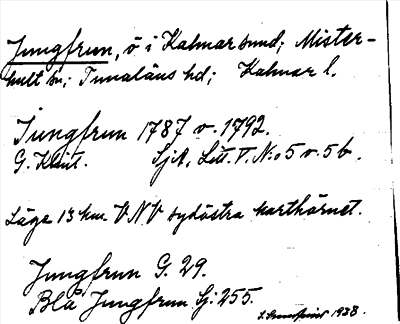 Jungfrun, ö i Kalmar sund; Mister-
hult sn; Tunaläns hd; Kalmar l.
Jungfrun 1787 o. 1792.
G. Klint. Sjk. Litt. V. N:o 5 o. 5b.
Läge 13 km VNV sydöstra karthörnet.
Jungfrun G. 29.
Blå Jungfrun Sj. 255.
1938.